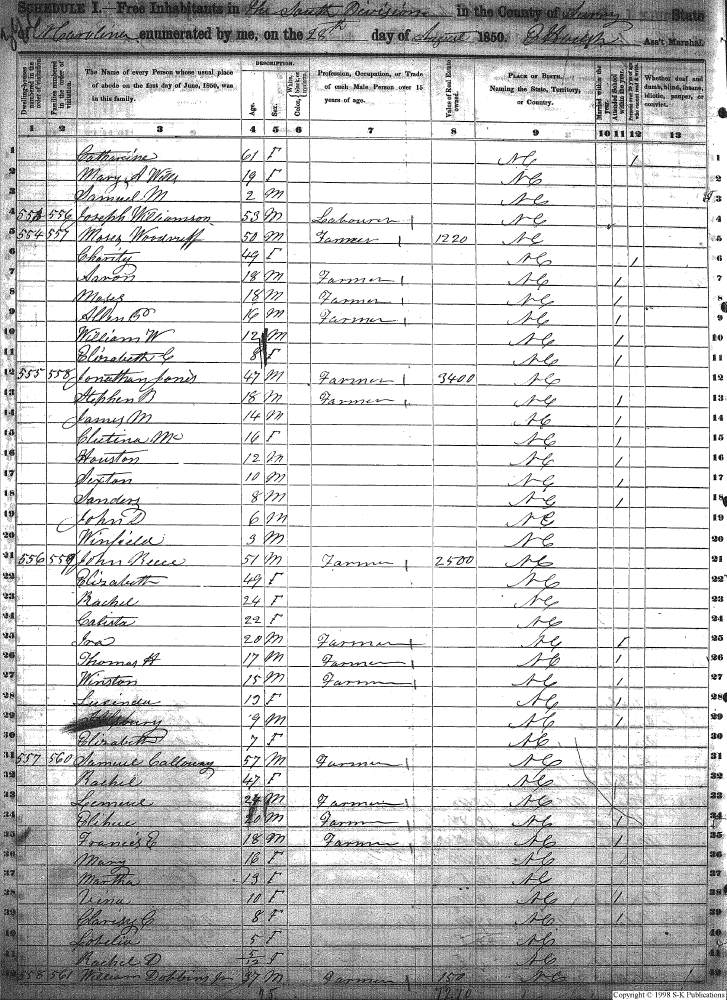 SCHEDULE I.—Free Inhabitants in the South Division in the County of Surry State
of N Carolina enumerated by me, on the 28th day of August 1850. Ass't Marshal.
DESCRIPTION.
Dwelling-houses numbered in the order of visitation.
Families numbered in the order of visitation.
The Name of every Person whose usual place of abode on the first day of June, 1850, was in this family.
Age.
Sex.
Color, White, black, or mulatto.
Profession, Occupation, or Trade of each Male Person over 15 years of age.
Value of Real Estate owned.
PLACE OF BIRTH. Naming the State, Territory, or Country.
Married within the year.
Attended School within the year.
Whether deaf and dumb, blind, insane, idiotic, pauper, or convict.
1 2 3 4 5 6 7 8 9 10 11 12 13
1 Catharine 61 F NC / 1
2 Mary A Wills 19 F NC 2
3 Samuel M 2 M NC 3
4 553 556 Joseph Williamson 53 M Labourer NC 4
5 554 557 Moses Woodruff 50 M Farmer 1220 NC 5
6 Charity 49 F NC / 6
7 Aaron 18 M Farmer NC / 7
8 Moses 18 M Farmer NC / 8
9 Allen 16 M Farmer NC / 9
10 William W 12 M NC / 10
11 Elizabeth C 8 F NC / 11
12 555 558 Jonathan Jones 47 M Farmer 3400 NC 12
13 Stephen 18 M Farmer NC / 13
14 James M 14 M NC / 14
15 Clutina Mc 16 F NC / 15
16 Houston 12 M NC / 16
17 Sexton 10 M NC / 17
18 Sanders 8 M NC / 18
19 John D 6 M NC 19
20 Winfield 3 M NC 20
21 556 559 John Reece 51 M Farmer 2500 NC 21
22 Elizabeth 49 F NC 22
23 Rachel 24 F NC 23
24 Calista 22 F NC 24
25 Ira 20 M Farmer NC / 25
26 Thomas H 17 M Farmer NC / 26
27 Winston 15 M Farmer NC / 27
28 Lucinda 13 F NC / 28
29 9 M NC / 29
30 Elizabeth 7 F NC 30
31 557 560 Samuel Calloway 57 M Farmer NC 31
32 Rachel 47 F NC 32
33 24 M Farmer NC 33
34 Elihue 20 M Farmer NC / 34
35 Francis E 18 M Farmer NC / 35
36 Mary 16 F NC 36
37 Martha 13 F NC 37
38 Vena 10 F NC / 38
39 Clarisy C 8 F NC / 39
40 Lobelia 5 F NC 40
41 Rachel D 5/12 F NC 41
558 561 William Dobbins Jr 37 M Farmer 150 NC
Copyright © 1998 S-K Publications